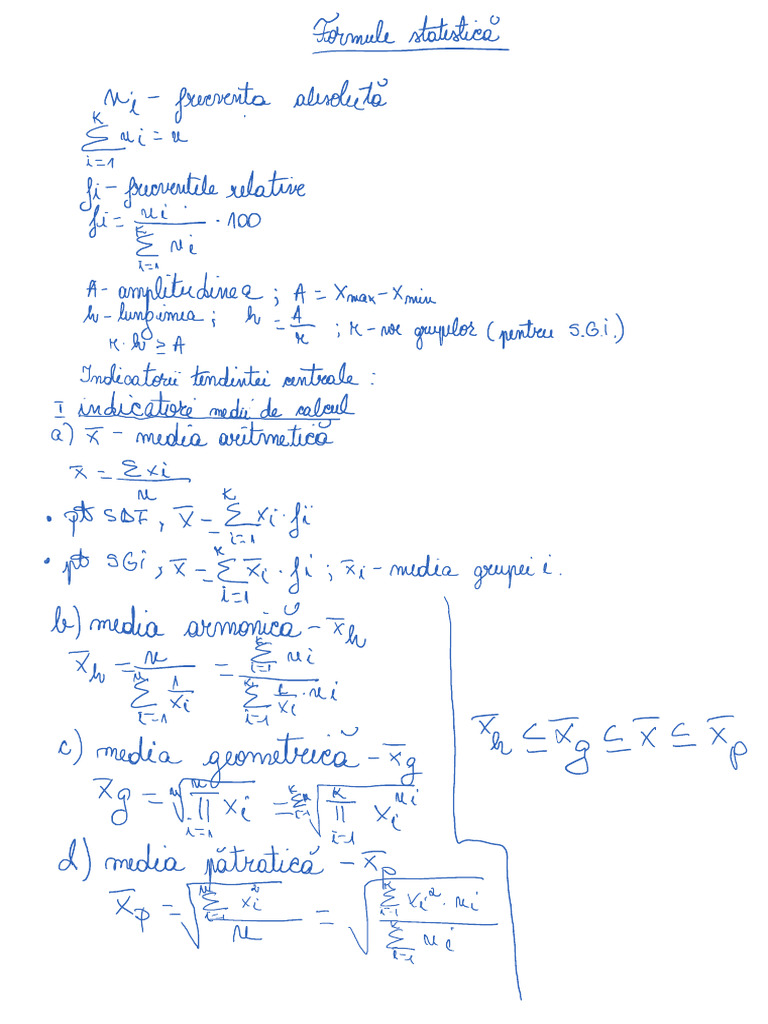 Formule statistică
ni - frecventa absolută
∑_{i=1}^{k} ni = n
fi - frecventele relative
fi = ni / ∑_{i=1}^{k} ni · 100
A - amplitudinea ; A = Xmax - Xmin
h - lungimea ; h = A/r ; r - nr grupelor (pentru S.G.i.)
r · h ≥ A
Indicatorii tendintei centrale :
I indicatori medii de calcul
a) x̄ - media aritmetică
x̄ = ∑xi / n
• pt SDF, x̄ = ∑_{i=1}^{k} xi · fi
• pt SGi, x̄ = ∑_{i=1}^{k} x̄i · fi ; x̄i - media grupei i.
b) media armonică - x̄h
x̄h = n / ∑_{i=1}^{n} 1/xi = ∑_{i=1}^{k} ni / ∑_{i=1}^{k} 1/xi · ni
x̄h ⊆ x̄g ⊆ x̄ ⊆ x̄p
c) media geometrică - x̄g
x̄g = ⁿ√(∏_{i=1}^{n} xi) = ^{∑_{i=1}^{k} ni}√(∏_{i=1}^{k} xi^{ni})
d) media pătratică - x̄p
x̄p = √(∑_{i=1}^{n} xi² / n) = √(∑_{i=1}^{k} xi² · ni / ∑_{i=1}^{k} ni)